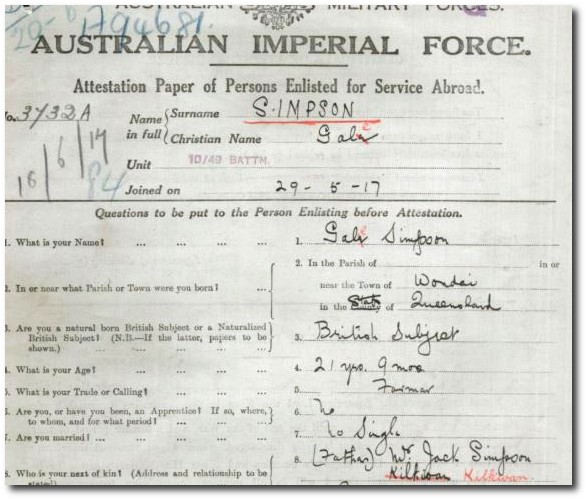 MILITARY FORCES.
1794681.
AUSTRALIAN IMPERIAL FORCE.
Attestation Paper of Persons Enlisted for Service Abroad.
No. 3732A
Name in full
Surname SIMPSON
Christian Name
Unit 10/49 BATTN.
16/6/17
84
Joined on 29-5-17
Questions to be put to the Person Enlisting before Attestation.
1. What is your Name? ... ... ... 1. Simpson
2. In or near what Parish or Town were you born? ... 2. In the Parish of in or
near the Town of Wondai
in the State of Queensland
3. Are you a natural born British Subject or a Naturalized
British Subject? (N.B.—If the latter, papers to be
shown.) ... ... ... 3. British Subject
4. What is your Age? ... ... ... 4. 21 yrs. 9 mos
5. What is your Trade or Calling? ... ... 5. Farmer
6. Are you, or have you been, an Apprentice? If so, where,
to whom, and for what period? ... ... 6. No
7. Are you married? ... ... ... 7. No Single
8. Who is your next of kin? (Address and relationship to be
stated) 8. (Father) Mr. Jack Simpson
Kilkivan Kilkivan.